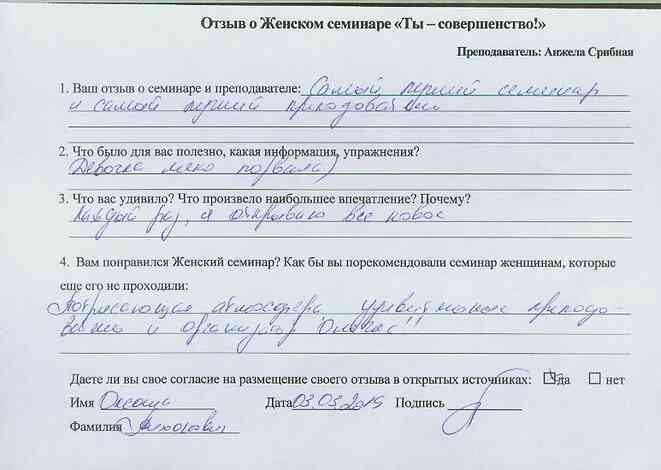 Отзыв о Женском семинаре «Ты – совершенство!»
Преподаватель: Анжела Срибная
1. Ваш отзыв о семинаре и преподавателе: Самый лучший семинар
и самый лучший преподаватель
2. Что было для вас полезно, какая информация, упражнения?
Девочка
3. Что вас удивило? Что произвело наибольшее впечатление? Почему?
Каждый раз, я открываю все новое
4. Вам понравился Женский семинар? Как бы вы порекомендовали семинар женщинам, которые
еще его не проходили:
Потрясающая атмосфера, удивительные препода-
ватель и организатор
Даете ли вы свое согласие на размещение своего отзыва в открытых источниках: да нет
Имя Оксана Дата 03.03.2015 Подпись
Фамилия